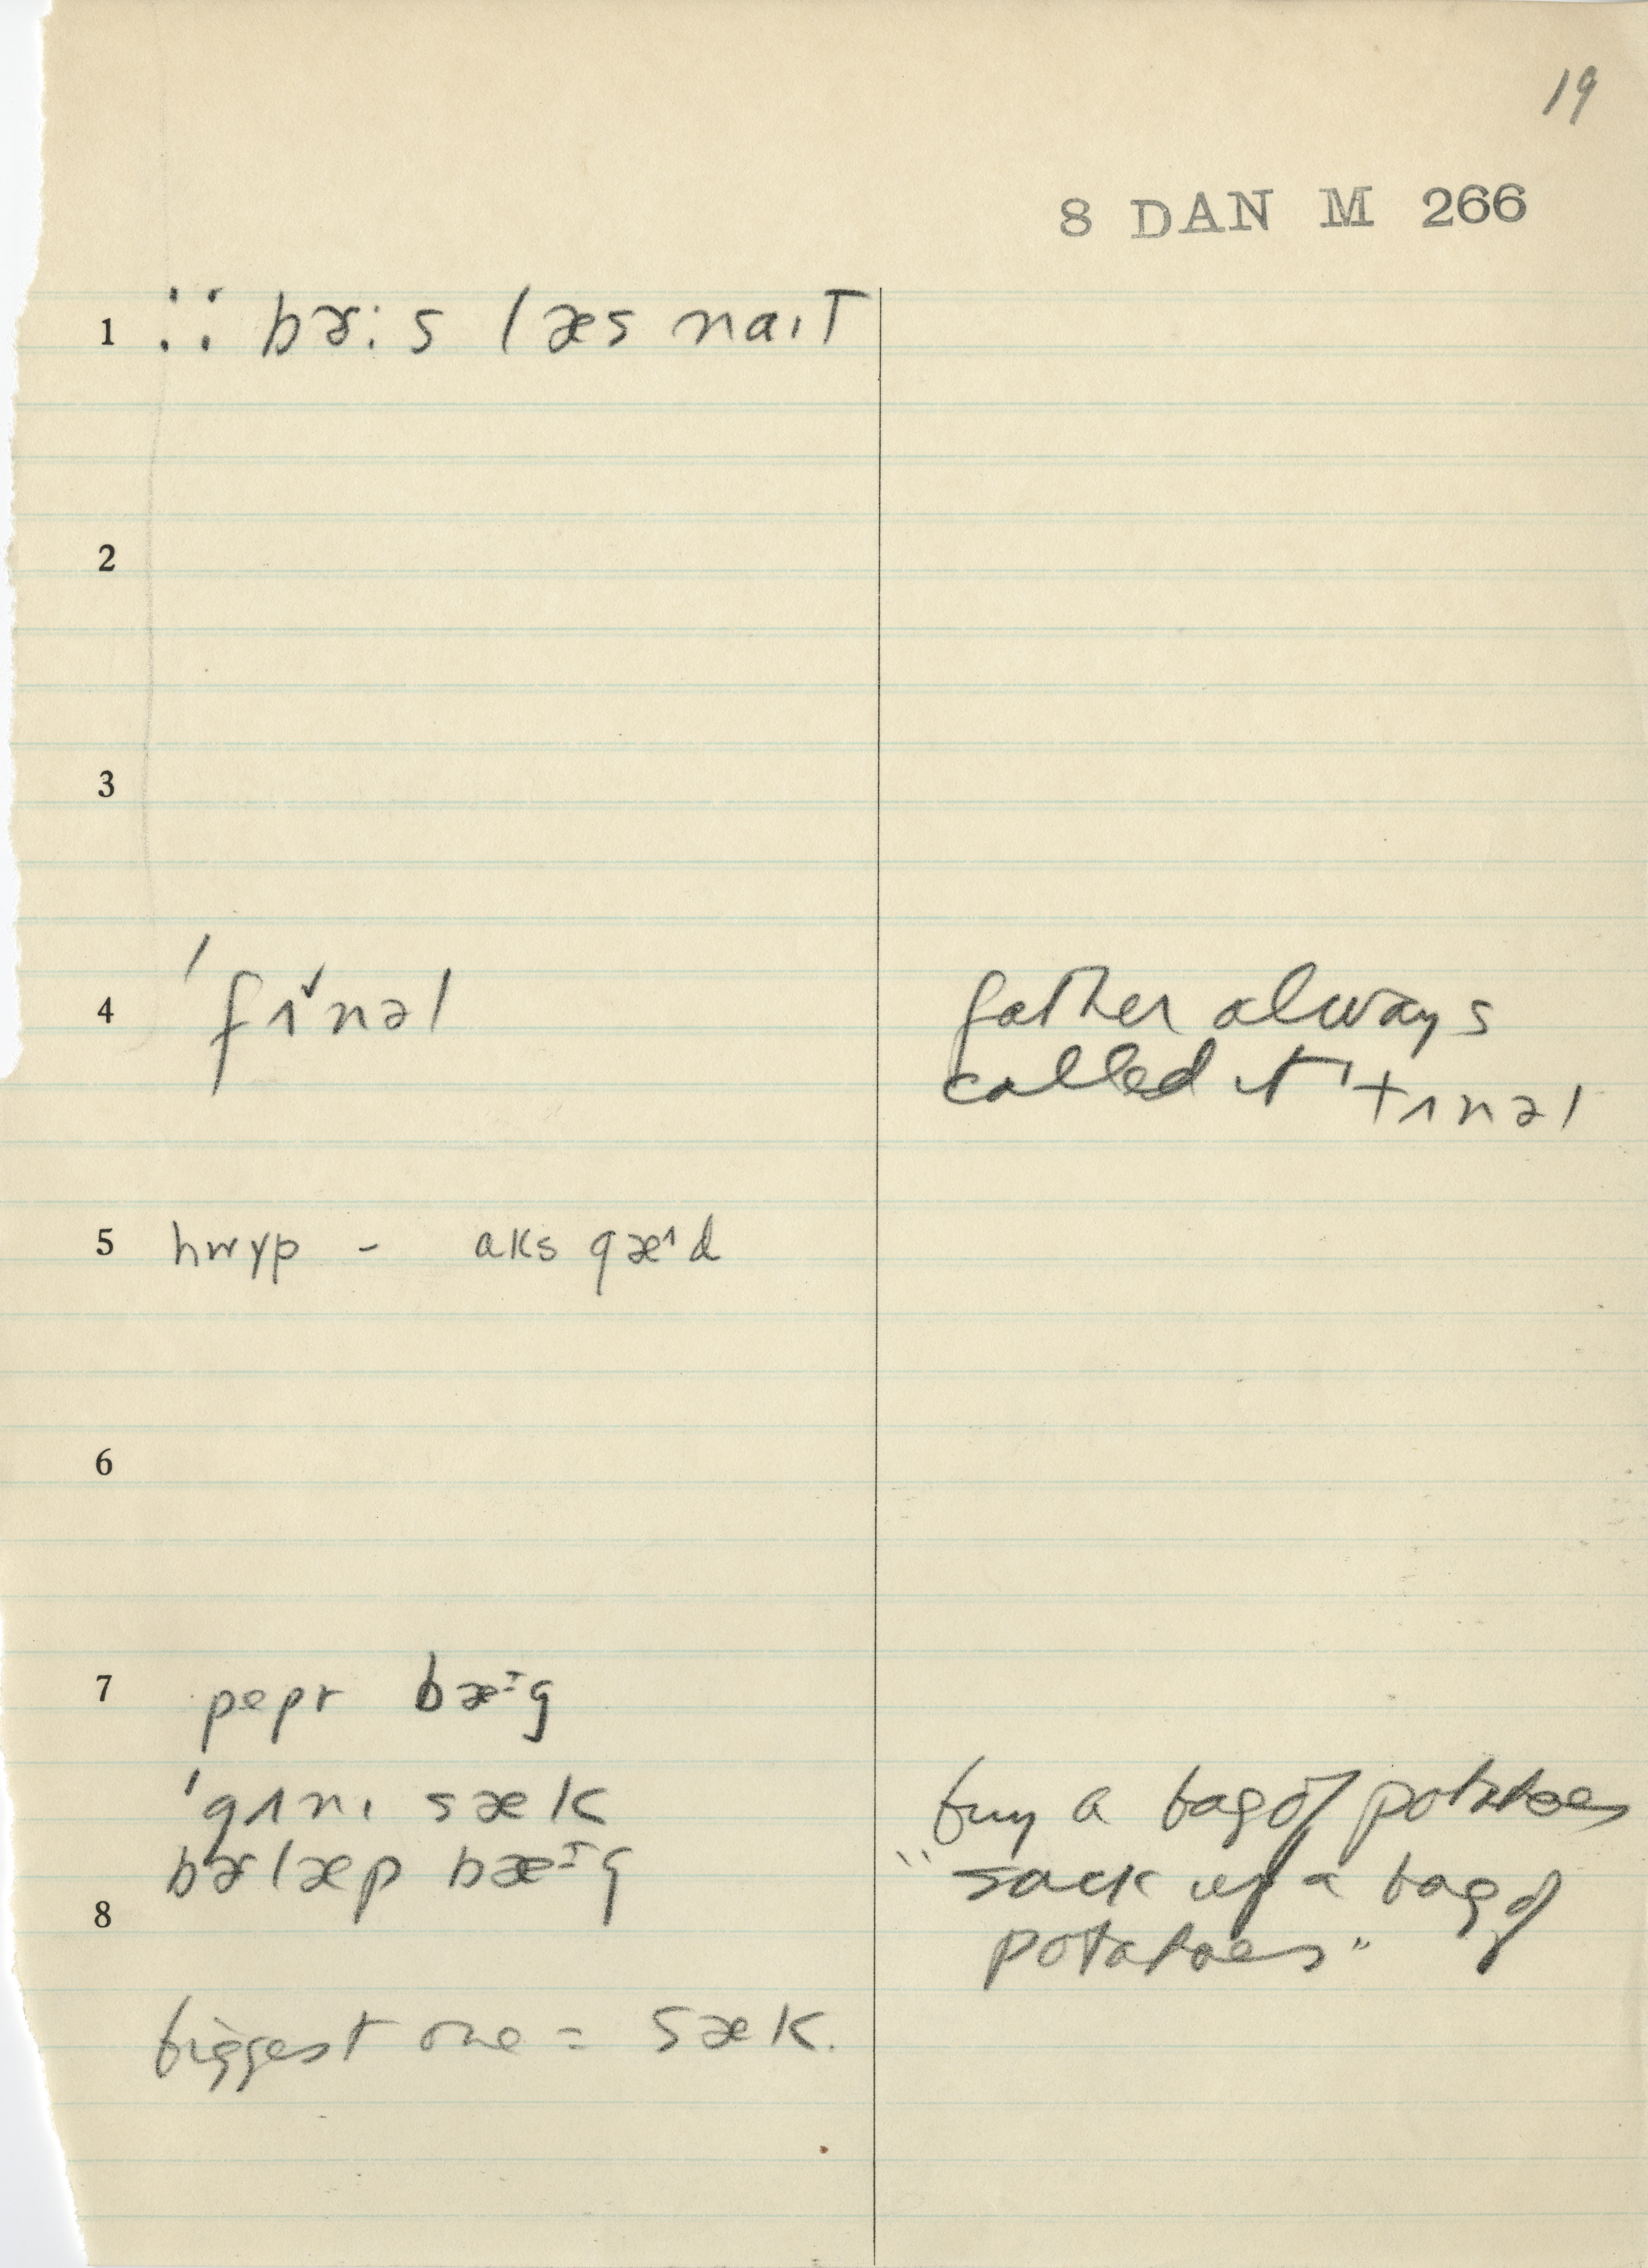 19
8 DAN M 266
1 ∵ bɚ:s læs naɪT
2
3
4 ˈfɪ˅nəl
father always
called it ˈtɪnəl
5 hwɪp - aks gæ^d
6
7 pepɚ bæ-ɪg
ˈgʌnɪ sæk
bɚlæp bæ-ɪg
buy a bag of potatoes
"sack up a bag of
potatoes"
8
biggest one = sæk.